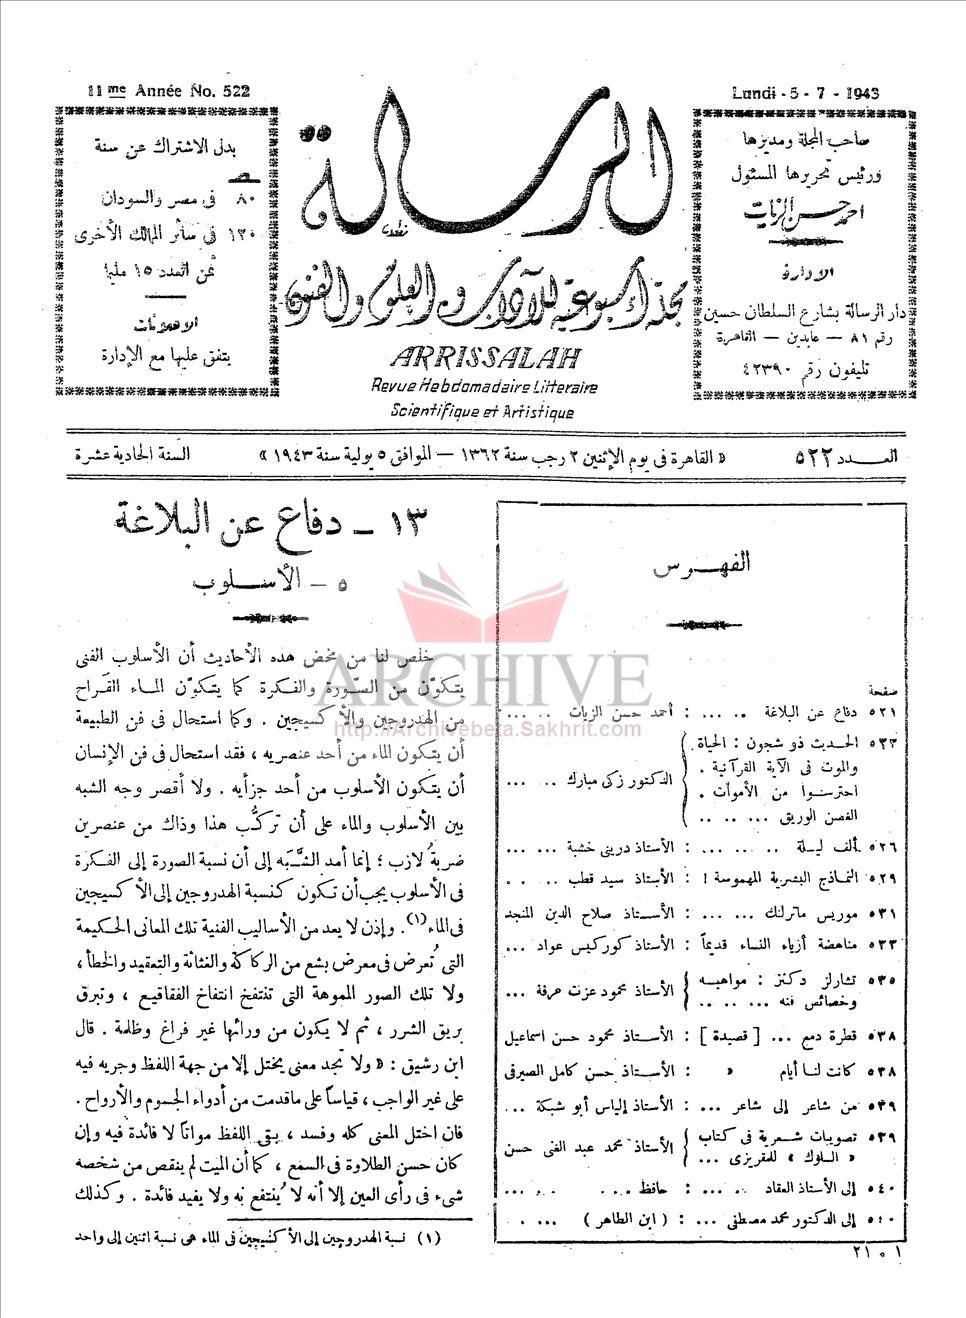 11me Année No. 522
Lundi - 5 - 7 - 1943
بدل الاشتراك عن سنة
٨٠ فى مصر والسودان
١٢٠ فى سائر الممالك الأخرى
ثمن العدد ١٥ مليما
الاعلانات
يتفق عليها مع الإدارة
الرسالة
مجلة أسبوعية للآداب والعلوم والفنون
ARRISSALAH
Revue Hebdomadaire Litteraire
Scientifique et Artistique
صاحب المجلة ومديرها
ورئيس تحريرها المسئول
احمد حسن الزيات
الادارة
دار الرسالة بشارع السلطان حسين
رقم ٨١ — عابدين — القاهرة
تليفون رقم ٤٢٣٩٠
العـــدد ٥٢٢
« القاهرة فى يوم الإثنين ٢ رجب سنة ١٣٦٢ — الموافق ٥ يولية سنة ١٩٤٣ »
السنة الحادية عشرة
الفهـــرس
صفحة
٥٢١ دفاع عن البلاغة ... ... : أحمد حسن الزيات ... ...
٥٢٣ الحديث ذو شجون : الحياة
والموت فى الآية القرآنية .
احترسوا من الأموات .
الغصن الوريق ... .. ..
الدكتور زكى مبارك ... ...
٥٢٦ ألف ليسلة .. ... ... : الأستاذ درينى خشبة ... ...
٥٢٩ النماذج البشرية المهموسة ! : الأستاذ سيد قطب .. . .
٥٣١ موريس ماترلنك ... ... : الأستاذ صلاح الدين المنجد
٥٣٣ مناهضة أزياء النساء قديماً : الأستاذ كوركيس عواد ...
٥٣٥ تشارلز دكنز : مواهبه
وخصائص فنه ... .. ..
الأستاذ محمود عزت عرفة ...
٥٣٨ قطرة دمع ... [ قصيدة ] : الأستاذ محمود حسن اسماعيل
٥٣٨ كانت لنا أيام » : الأستاذ حسن كامل الصيرفى
٥٣٩ من شاعر إلى شاعر ... : الأستاذ إلياس أبو شبكة ..
٥٣٩ تصويبات شعرية فى كتاب
« السلوك » للمقريزى ...
الأستاذ محمد عبد الغنى حسن
٥٤٠ إلى الأستاذ العقاد .. ... : حافظ ... .. ...
٥٤٠ إلى الدكتور محمد مصطفى ... : ( ابن الطاهر ) ... .
١٣ — دفاع عن البلاغة
٥ — الأســلوب
خلص لنا من مخض هذه الأحاديث أن الأسلوب الفنى
يتكوّن من الصّورة والفكرة كما يتكوّن الماء القَراح
من الهدروجين والأكسيجين . وكما استحال فى فن الطبيعة
أن يتكون الماء من أحد عنصريه ، فقد استحال فى فن الإنسان
أن يتكون الأسلوب من أحد جزأيه . ولا أقصر وجه الشبه
بين الأسلوب والماء على أن تركُّب هذا وذاك من عنصرين
ضربةُ لازب ؛ إنما أمد الشَّبَه إلى أن نسبة الصورة إلى الفكرة
فى الأسلوب يجب أن تكون كنسبة الهدروجين إلى الأكسيجين
فى الماء(١). وإذن لا يعد من الأساليب الفنية تلك المعانى الحكيمة
التى تُعرض فى معرض بشع من الركاكة والغثاثة والتعقيد والخطأ ،
ولا تلك الصور المموهة التى تنتفخ انتفاخ الفقاقيع ، وتبرق
بريق الشرر ، ثم لا يكون من ورائها غير فراغ وظلمة . قال
ابن رشيق : « ولا تجد معنى يختل إلا من جهة اللفظ وجريه فيه
على غير الواجب ، قياساً على ماقدمت من أدواء الجسوم والأرواح .
فان اختل المعنى كله وفسد ، بقى اللفظ مواتاً لا فائدة فيه وإن
كان حسن الطلاوة فى السمع ، كما أن الميت لم ينقص من شخصه
شىء فى رأى العين إلا أنه لا يُنتفع به ولا يفيد فائدة . وكذلك
(١) نسبة الهدروجين إلى الأكسيجين فى الماء هى نسبة اثنين إلى واحد
ARCHIVE
http://Archivebeta.Sakhrit.com